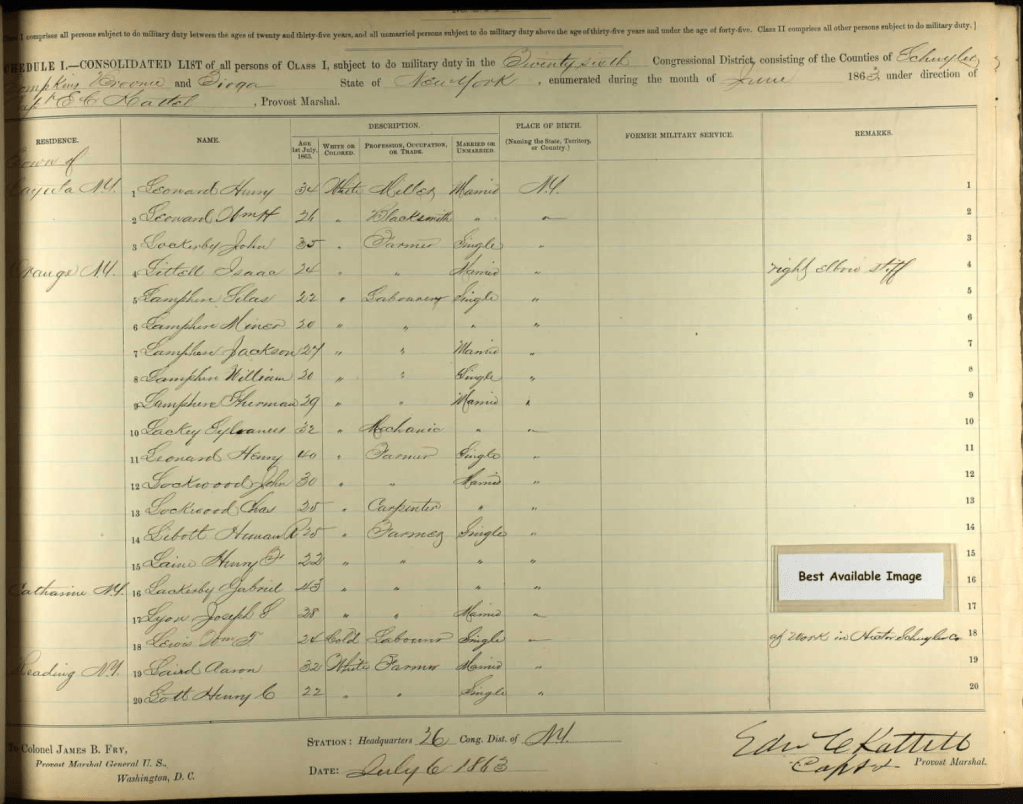 Class I comprises all persons subject to do military duty between the ages of twenty and thirty-five years, and all unmarried persons subject to do military duty above the age of thirty-five years and under the age of forty-five. Class II comprises all other persons subject to do military duty.]
SCHEDULE I.—CONSOLIDATED LIST of all persons of CLASS I, subject to do military duty in the Twenty sixth Congressional District, consisting of the Counties of Schuyler
Tompkins Broome and Tioga State of New York, enumerated during the month of June 1863 under direction of
Capt E C Kattel, Provost Marshal.
RESIDENCE. NAME. DESCRIPTION. PLACE OF BIRTH. FORMER MILITARY SERVICE. REMARKS.
AGE 1st July, 1863. WHITE OR COLORED. PROFESSION, OCCUPATION, OR TRADE. MARRIED OR UNMARRIED. (Naming the State, Territory, or Country.)
Town of
Cayuta N.Y. 1 Leonard Henry 34 White Miller Married N.Y. 1
2 Leonard Wm H 26 " Blacksmith " " 2
3 Lockerby John 35 " Farmer Single " 3
Orange N.Y. 4 Littell Isaac 24 " " Married " right elbow stiff 4
5 Lamphier Silas 22 " Labourer Single " 5
6 Lamphier Miner 20 " " " " 6
7 Lamphier Jackson 27 " " Married " 7
8 Lamphier William 21 " " Single " 8
9 Lamphier Sherman 29 " " Married " 9
10 Lackey Sylvanus 32 " Mechanic " " 10
11 Leonard Henry 40 " Farmer Single " 11
12 Lockwood John 30 " " Married " 12
13 Lockwood Chas 25 " Carpenter " " 13
14 Libott 25 " Farmer Single " 14
15 Laine Henry F 22 " " " " 15
Catharine N.Y. 16 Lockerby Gabriel 43 " " " " 16
17 Lyon Joseph S 28 " " Married " 17
18 Lewis Wm T. 24 Cold Labourer Single " at work in Schuyler Co 18
Reading N.Y. 19 Laird Aaron 32 White Farmer Married " 19
20 Lott Henry C 22 " " Single " 20
Best Available Image
To Colonel JAMES B. FRY,
Provost Marshal General U. S.,
Washington, D. C.
STATION: Headquarters 26 Cong. Dist. of N.Y.
DATE: July 6 1863
Edw C Kattell
Capt & Provost Marshal.